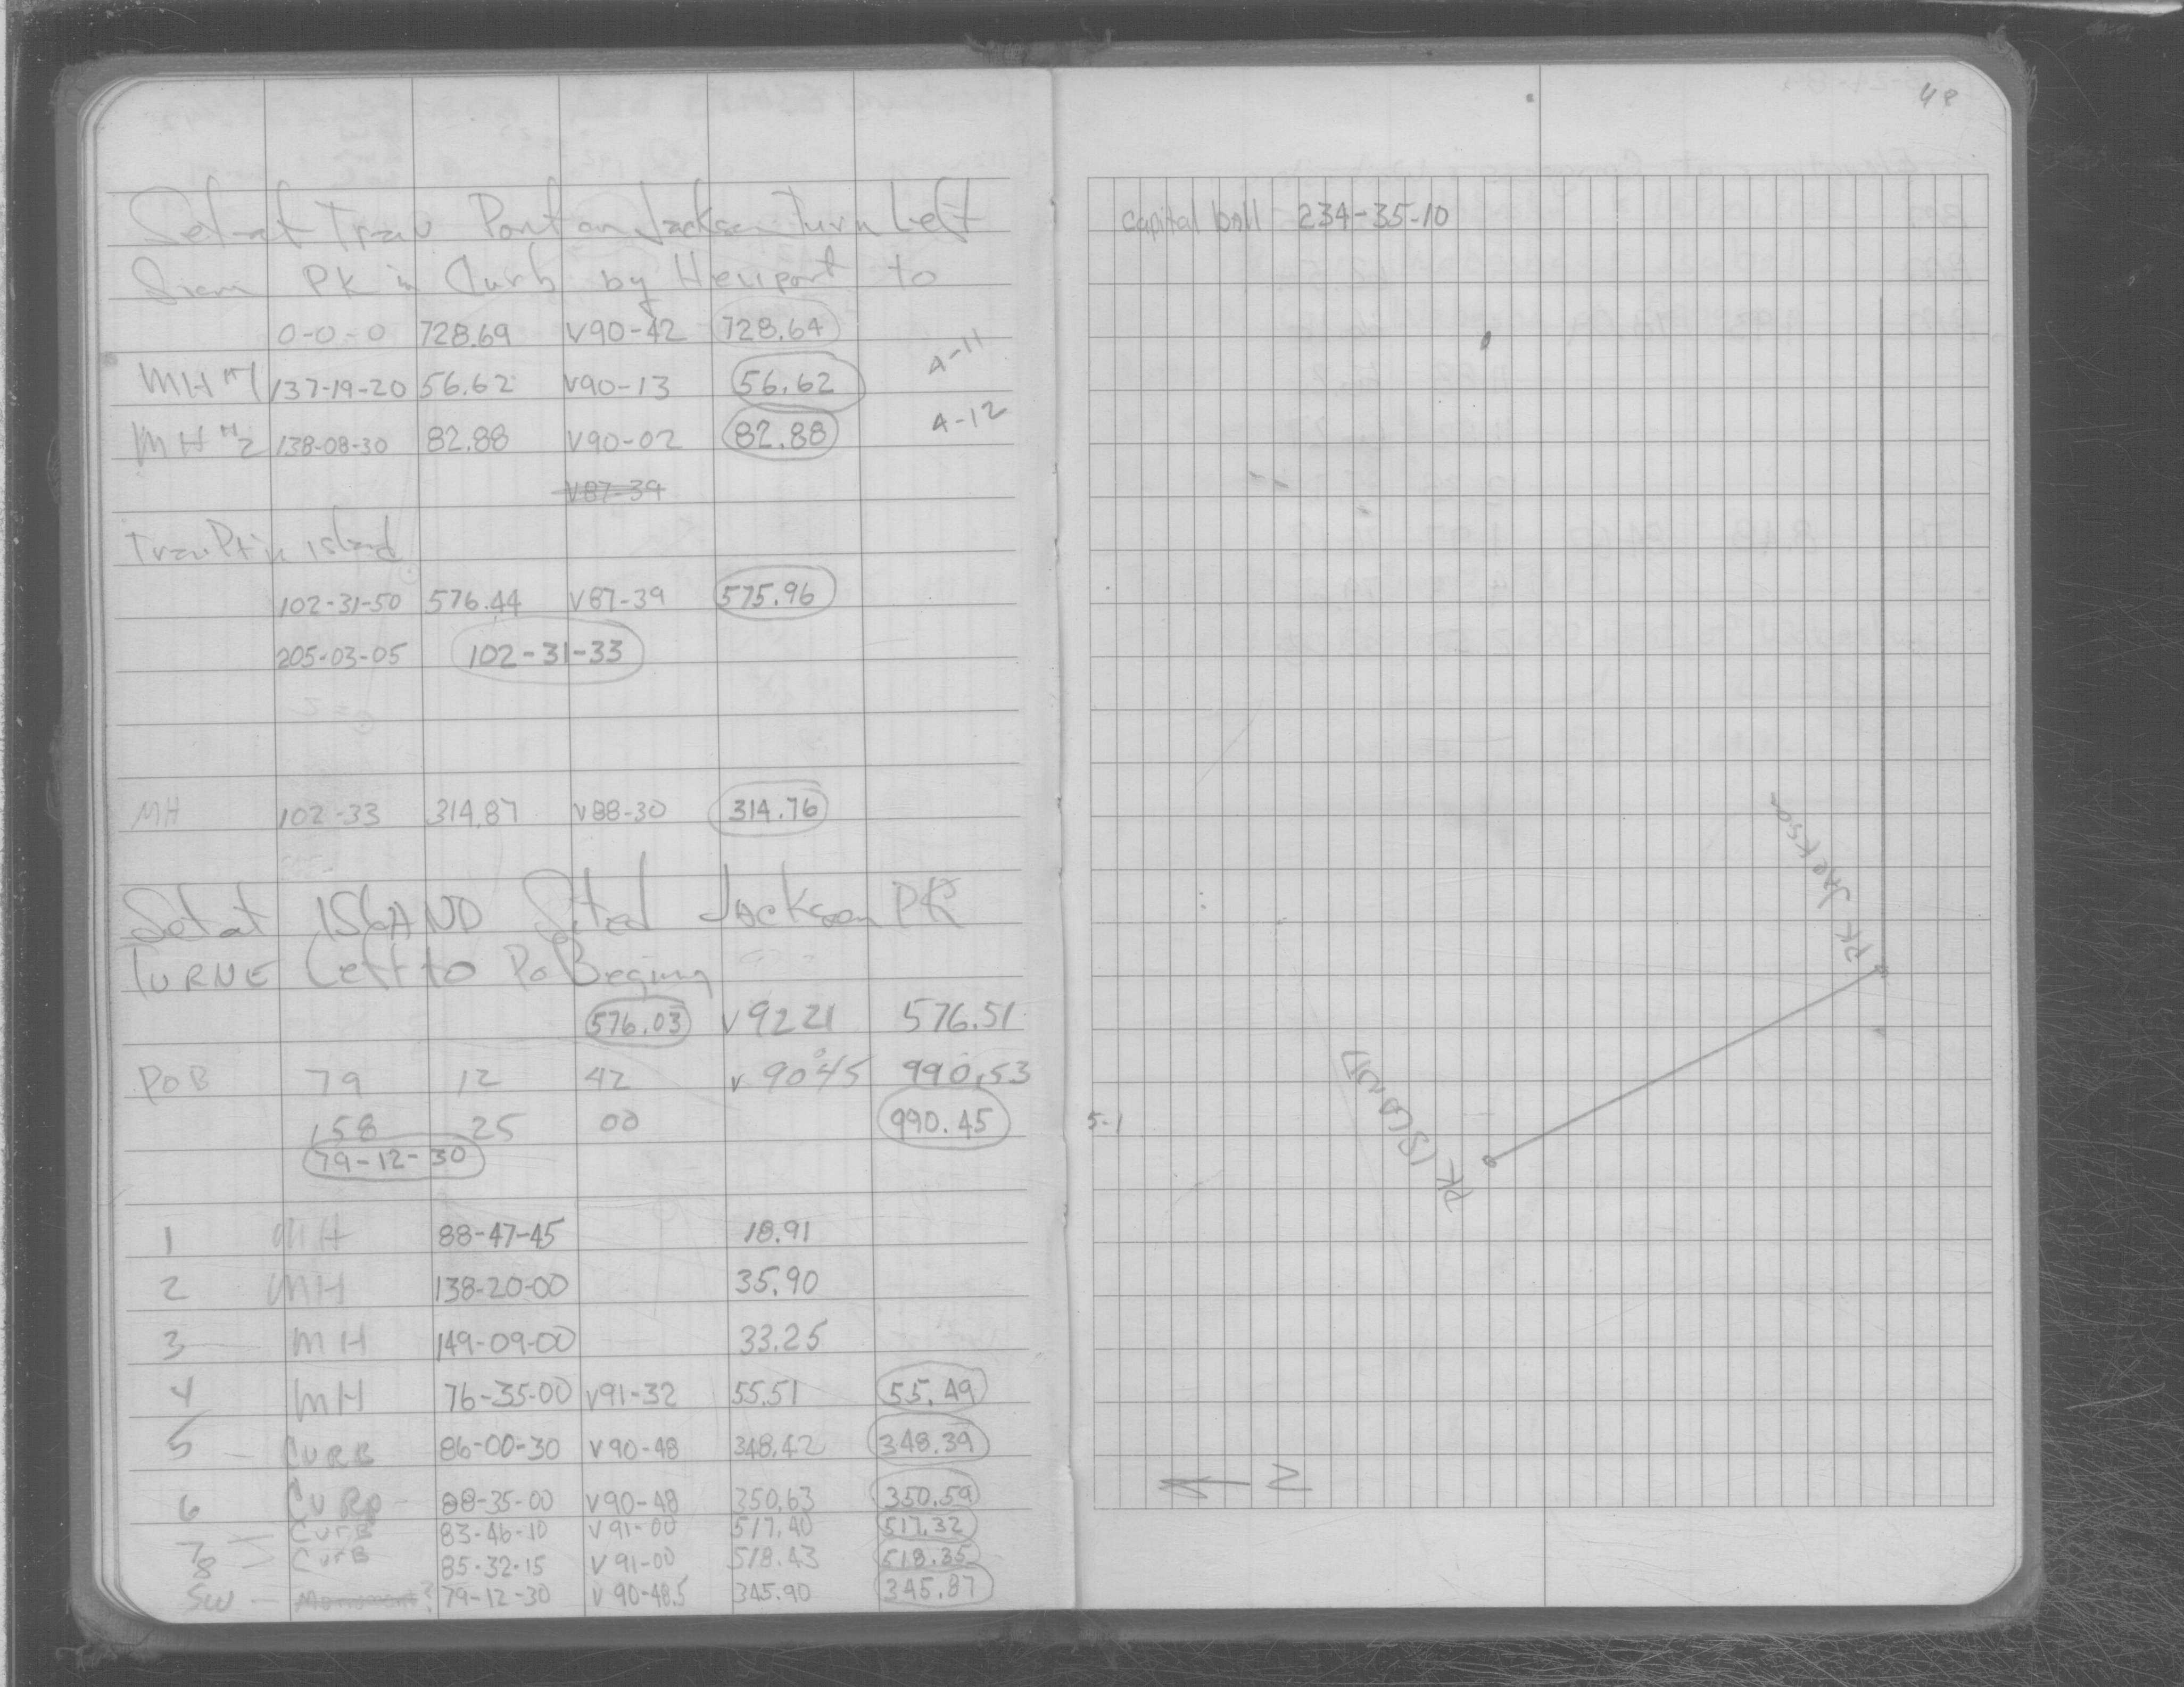 Set at Trav Point on Jackson Turn Left
PK in Curb by Heliport to
0-0-0 728.69 V90-42 728.64
MH #1 137-19-20 56.62 V90-13 56.62 A-11
MH #2 138-08-30 82.88 V90-02 82.88 A-12
V87-39
Trav Pt in Island
102-31-50 576.44 V87-39 575.96
205-03-05 102-31-33
MH 102-33 314.87 V88-30 314.76
Set at ISLAND Sited Jackson PK
TURNE Left to Po Begining
576.03 V9221 576.51
POB 79 12 42 V 90°45 990.53
158 25 00 990.45
79-12-30
1 MH 88-47-45 18.91
2 MH 138-20-00 35.90
3 MH 149-09-00 33.25
4 MH 76-35-00 V91-32 55.51 55.49
5 - CURB 86-00-30 V90-48 348.42 348.39
6 CURB 88-35-00 V90-48 350.63 350.59
7 - CurB 83-46-10 V91-00 517.40 517.32
8 - CurB 85-32-15 V91-00 518.43 518.35
SW - Monument? 79-12-30 V90-48.5 345.90 345.87
48
capital ball 234-35-10
PK Jackson
PK ISLAND
5-1
N